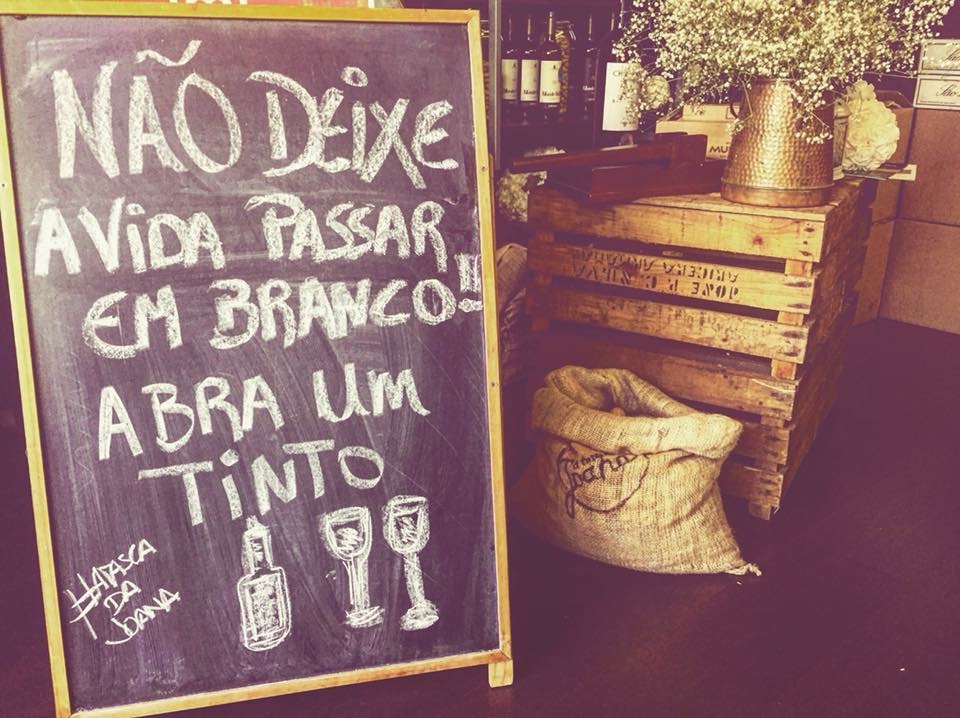 NÃO DEIXE
A VIDA PASSAR
EM BRANCO!!
ABRA UM
TINTO
#ATASCA
DA
JOANA
a tasca
Joana
MU